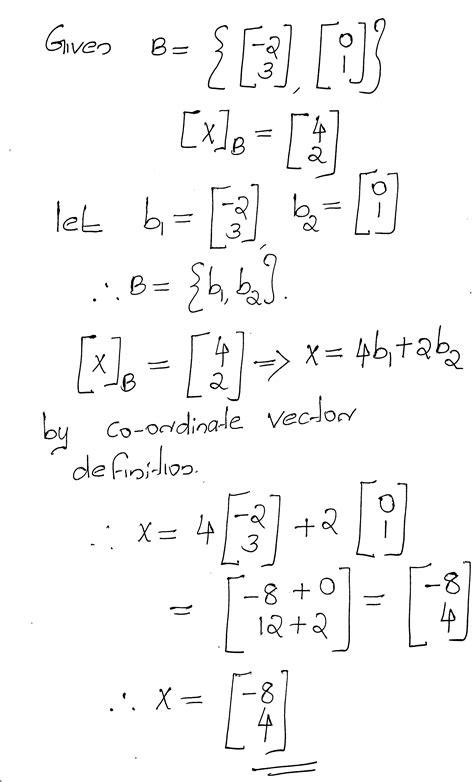 Given B = { [-2 3], [0 1] }
[x]_B = [4 2]
let b₁ = [-2 3], b₂ = [0 1]
∴ B = {b₁, b₂}.
[x]_B = [4 2] => x = 4b₁+2b₂
by co-ordinate vector
definition.
∴ x = 4 [-2 3] + 2 [0 1]
= [-8 + 0 12 + 2] = [-8 4]
∴ x = [-8 4]